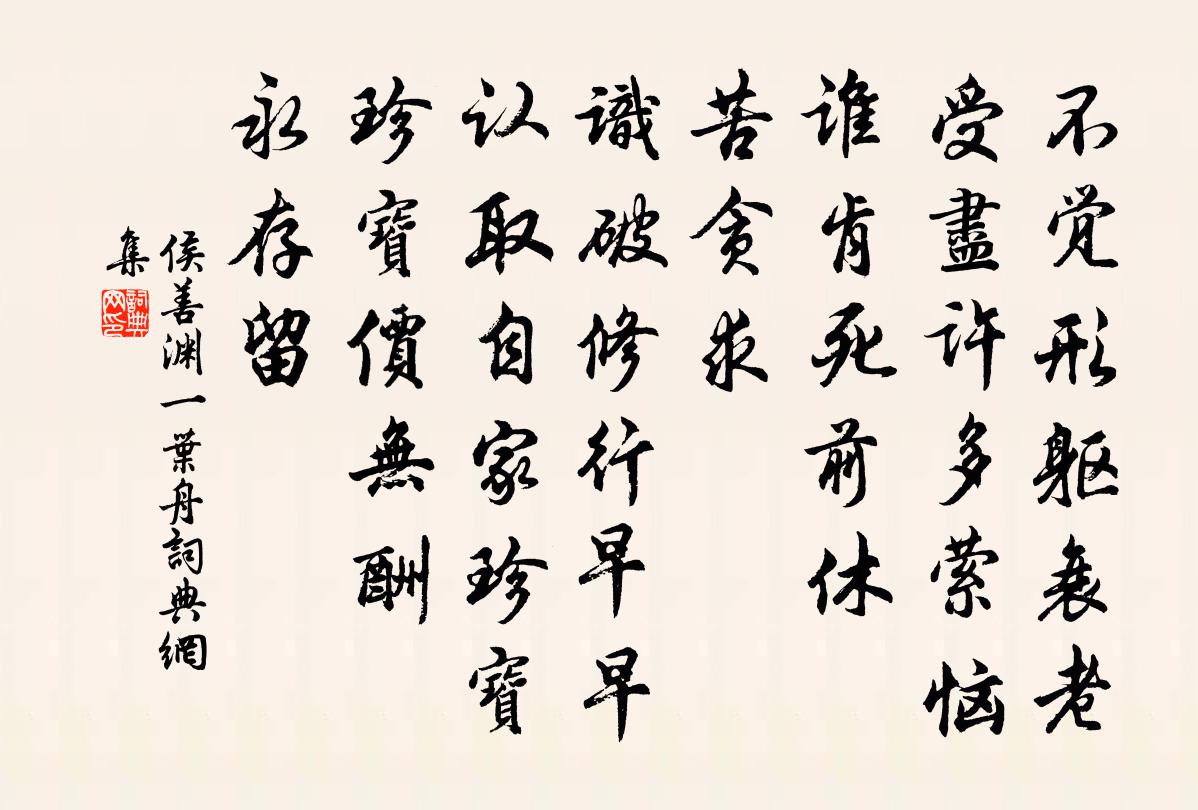 不觉形躯衰老
受盡许多萦恼
谁肯死前休
苦贪求
識破修行早早
认取自家珍寶
珍寶價無酬
永存留
侯善渊一葉舟詞典網
集
詞典
网印